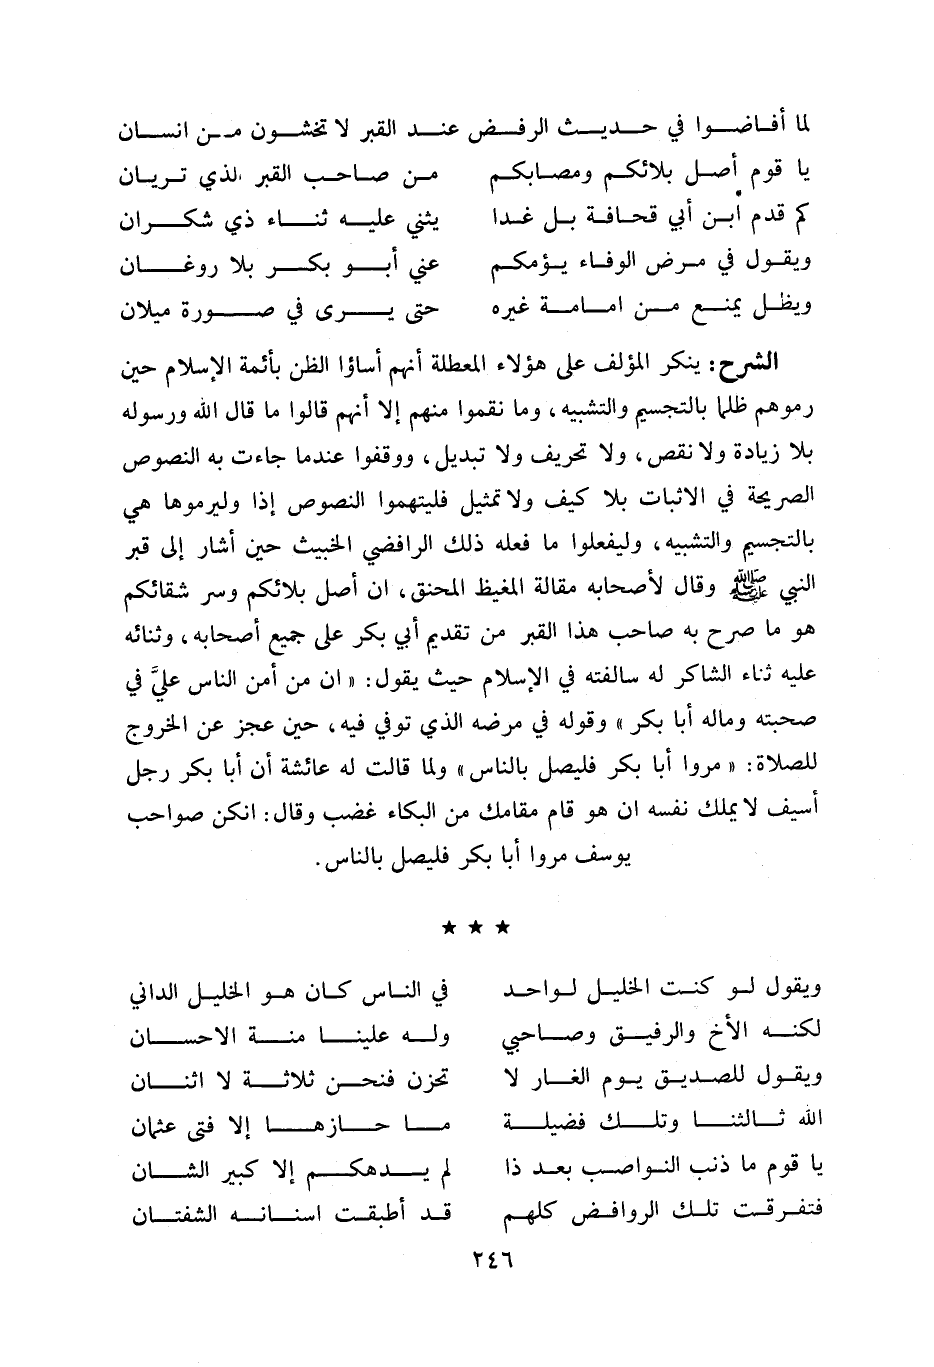 لما أفاضوا في حديث الرفض عند القبر لا تخشون من انسان
يا قوم أصل بلائكم ومصابكم من صاحب القبر الذي تريان
كم قدم ابن أبي قحافة بل غدا يثني عليه ثناء ذي شكران
ويقول في مرض الوفاء يؤمكم عني أبو بكر بلا روغان
ويظل يمنع من امامة غيره حتى يرى في صورة ميلان
الشرح: ينكر المؤلف على هؤلاء المعطلة أنهم أساؤا الظن بأئمة الإسلام حين
رموهم ظلما بالتجسيم والتشبيه، وما نقموا منهم إلا أنهم قالوا ما قال الله ورسوله
بلا زيادة ولا نقص، ولا تحريف ولا تبديل، ووقفوا عندما جاءت به النصوص
الصريحة في الاثبات بلا كيف ولا تمثيل فليتهموا النصوص إذا وليرموها هي
بالتجسيم والتشبيه، وليفعلوا ما فعله ذلك الرافضي الخبيث حين أشار إلى قبر
النبي ﷺ وقال لأصحابه مقالة المغيظ المحنق، ان أصل بلائكم وسر شقائكم
هو ما صرح به صاحب هذا القبر من تقديم أبي بكر على جميع أصحابه، وثنائه
عليه ثناء الشاكر له سالفته في الإسلام حيث يقول: « ان من أمن الناس عليَّ في
صحبته وماله أبا بكر » وقوله في مرضه الذي توفي فيه، حين عجز عن الخروج
للصلاة: « مروا أبا بكر فليصل بالناس » ولما قالت له عائشة أن أبا بكر رجل
أسيف لا يملك نفسه ان هو قام مقامك من البكاء غضب وقال: انكن صواحب
يوسف مروا أبا بكر فليصل بالناس.
★ ★ ★
ويقول لو كنت الخليل لواحد في الناس كان هو الخليل الداني
لكنه الأخ والرفيق وصاحبي وله علينا منة الاحسان
ويقول للصديق يوم الغار لا تحزن فنحن ثلاثة لا اثنان
الله ثالثنا وتلك فضيلة ما حازها إلا فتى عثمان
يا قوم ما ذنب النواصب بعد ذا لم يدهكم إلا كبير الشان
فتفرقت تلك الروافض كلهم قد أطبقت اسنانه الشفتان
٢٤٦